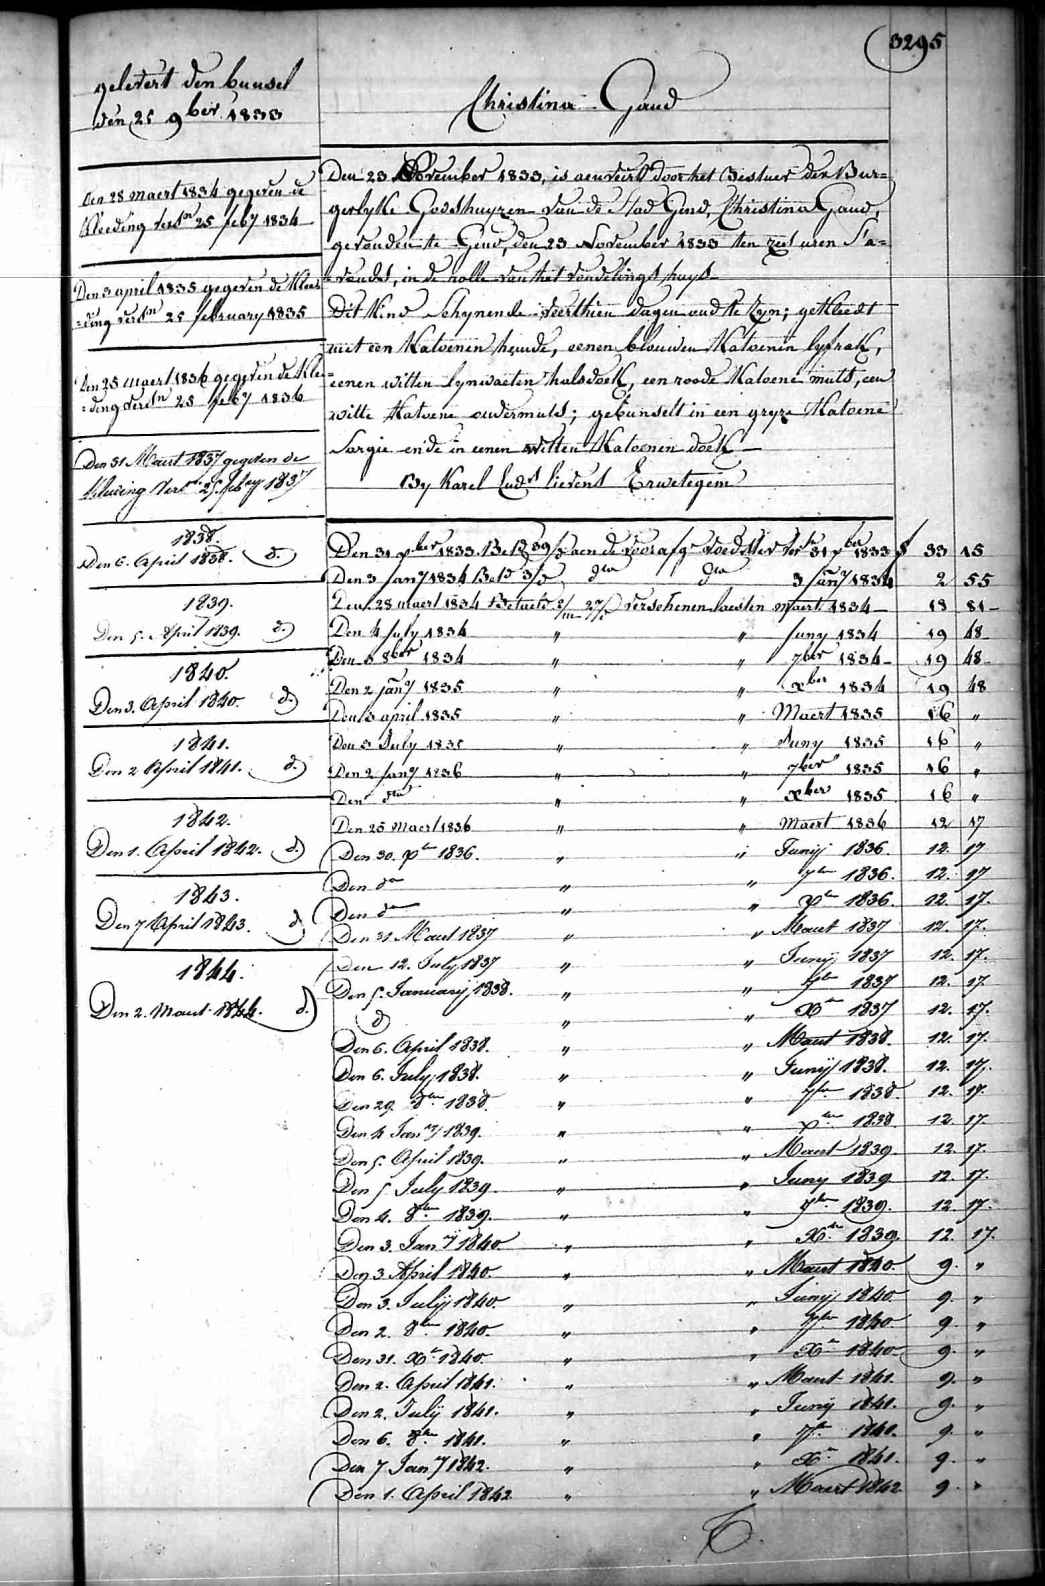 3295
gelevert den bunsel
den 25 9ber 1833
den 28 maert 1834 gegeven de
kleeding versn 25 feby 1834
Den 3 april 1835 gegeven de klee
=ding versn 25 february 1835
den 25 maert 1836 gegeven de klee=
=ding versn 25 feby 1836
Den 31 Maert 1837 gegeven de
kleeding versn 25 feby 1837
1838.
Den 6. April 1838. d.
1839.
Den 5. April 1839. d.
1840.
Den 3. April 1840. d.
1841.
Den 2 April 1841. d.
1842.
Den 1. April 1842. d.
1843.
Den 7 April 1843. d
1844.
Den 2. Maert 1844. d.
Christina Gaud
Den 23 November 1833, is aenveird door het Bestuer der Bur=
gerlyke Godshuyzen van de Stad Gend, Christina Gaud,
gevonden te Gend, den 23 November 1833 ten zes uren S'a=
=vonds, in de rolle van het vondelingshuys
Dit kind schynende veerthien dagen oud te zyn; gekleedt
met een Katoenen hemde, eenen blauwen Katoenen lyfrak,
eenen witten lynwaeten halsdoek, een roode Katoene muts, een
witte Katoene ondermuts; gebunselt in een gryze Katoene
Sargie ende in eenen witten Katoenen doek
By Karel Luds lievens Erwetegem
Den 31 xber 1833. Be 39/3 aen de voorafge voedster vern 31 xber 1833 f 33 15
Den 3 jany 1834 Be 3/3 dta dta 3 jany 1834 2 55
Den 28 maert 1834 Betaeld verschenen laesten maert 1834 18 81
Den 4 july 1834 " " juny 1834 19 48
Den 3 8ber 1834 " " 7ber 1834 19 48
Den 2 jany 1835 " " xber 1834 19 48
Den 3 april 1835 " " Maert 1835 16 "
Den 3 July 1835 " " Juny 1835 16 "
Den 2 jany 1836 " " 7ber 1835 16 "
Den dta " " xber 1835 16 "
Den 25 maert 1836 " " maert 1836 12 17
Den 30. xbr 1836. " " Junij 1836. 12. 17
Den do " " 7ber 1836. 12. 17
Den do " " xbr 1836. 12. 17.
Den 31. Maert 1837 " " Maert 1837 12. 17.
Den 12. July 1837 " " Junij 1837 12. 17.
Den 5. Januarij 1838. " " 7ber 1837 12. 17.
d " " Xbr 1837 12. 17.
Den 6. April 1838. " " Maert 1838. 12. 17.
Den 6. July 1838. " " Junij 1838. 12. 17.
Den 29. 8ber 1838. " " 7ber 1838. 12. 17.
Den 4 Jany 1839. " " xber 1838 12. 17.
Den 5. April 1839. " " Maert 1839. 12. 17.
Den 5 July 1839. " " Juny 1839 12. 17.
Den 4. 8ber 1839. " " 7ber 1839. 12. 17.
Den 3. Jany 1840. " " Xbr 1839. 12. 17.
Den 3. April 1840. " " Maert 1840 9. "
Den 3. July 1840. " " Junij 1840. 9. "
Den 2. 8br 1840. " " 7ber 1840 9. "
Den 31. Xbr 1840. " " Xbr 1840 9. "
Den 2. April 1841. " " Maert 1841. 9. "
Den 2. Julij 1841. " " Junij 1841. 9. "
Den 6. 8br 1841. " " 7br 1841. 9. "
Den 7 Jany 1842. " " Xbr 1841. 9. "
Den 1. April 1842 " " Maert 1842 9. "